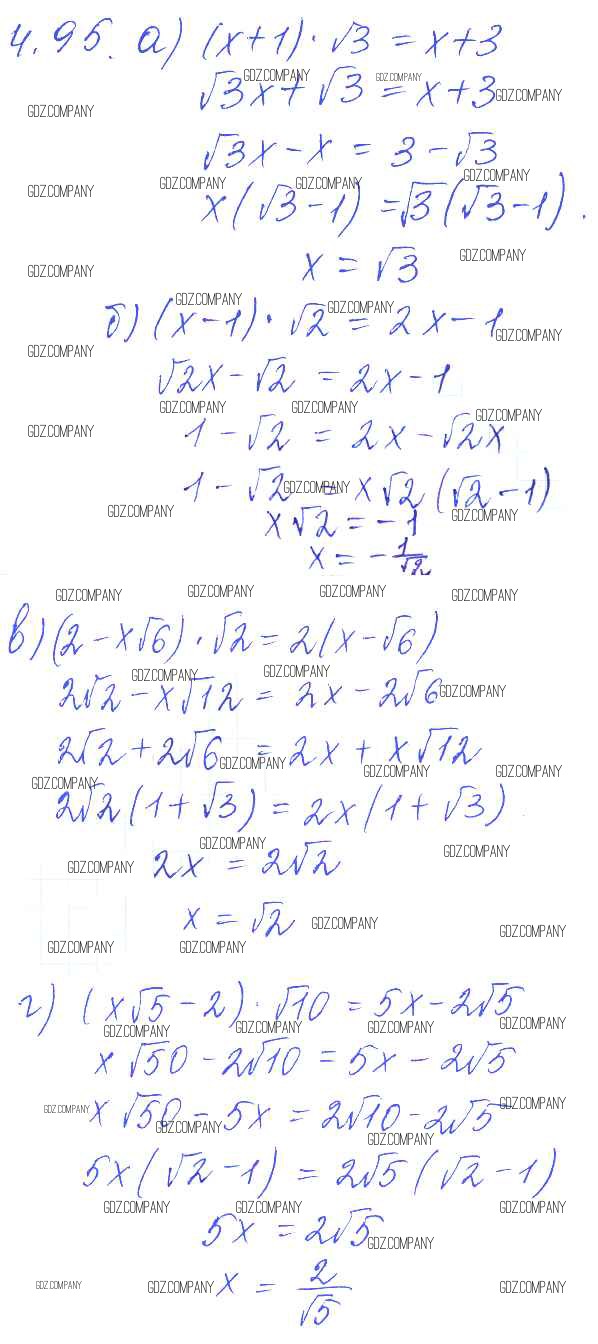 4.95. а) (x+1)·√3 = x+3
√3x+√3 = x+3
√3x−x = 3−√3
x(√3−1) = √3(√3−1).
x = √3
б) (x−1)·√2 = 2x−1
√2x−√2 = 2x−1
1−√2 = 2x−√2x
1−√2 = x√2(√2−1)
x√2 = −1
x = −1/√2
в) (2−x√6)·√2 = 2(x−√6)
2√2−x√12 = 2x−2√6
2√2+2√6 = 2x+x√12
2√2(1+√3) = 2x(1+√3)
2x = 2√2
x = √2
г) (x√5−2)·√10 = 5x−2√5
x√50−2√10 = 5x−2√5
x√50−5x = 2√10−2√5
5x(√2−1) = 2√5(√2−1)
5x = 2√5
x = 2/√5
GDZ.COMPANY